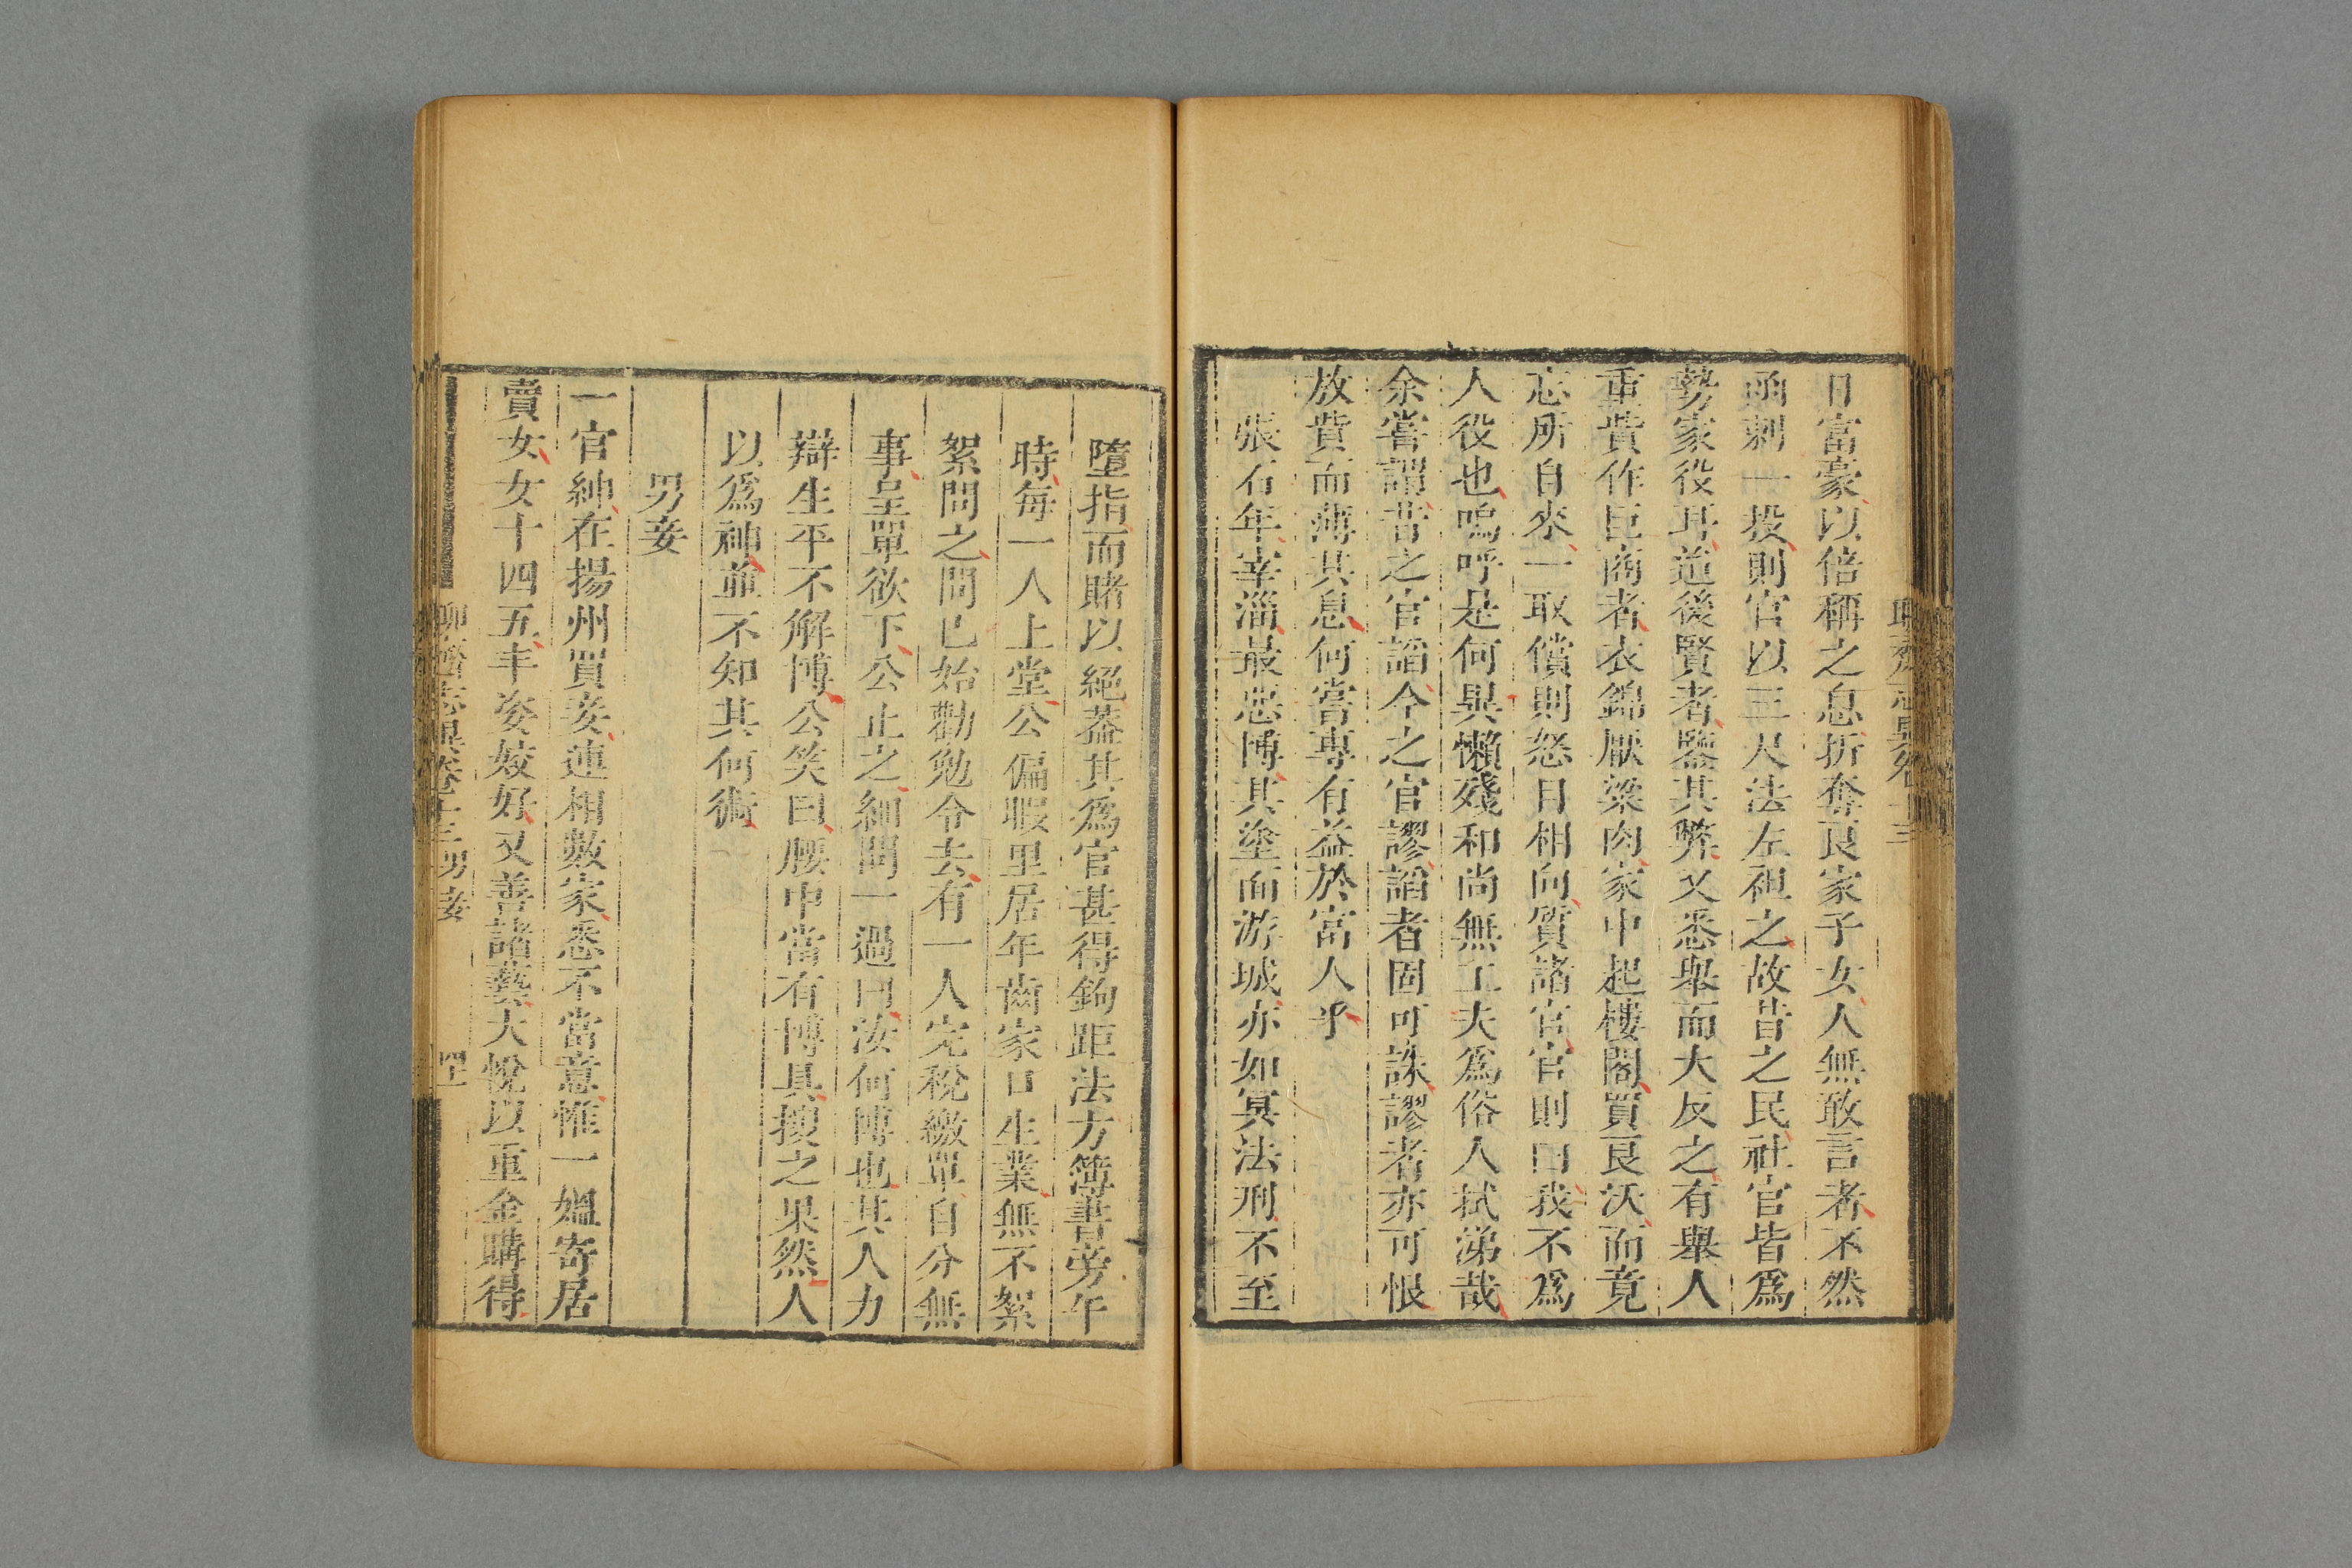 曰富豪以倍稱之息折奪良家子女人無敢言者不然
函刺一投則官以三尺法左袒之故昔之民社官皆爲
勢家役耳迨後賢者鑒其弊又悉舉而大反之有舉人
重貲作巨商者衣錦厭粱肉家中起樓閣買良沃而竟
忘所自來一取償則怒目相向質諸官官則曰我不爲
人役也嗚呼是何異懶殘和尚無工夫爲俗人拭涕哉
余嘗謂昔之官諂今之官謬諂者固可誅謬者亦可恨
放貲而薄其息何嘗專有益於富人乎
張石年宰淄最惡博其塗面游城亦如冥法刑不至
聊齋志異卷十三
墮指而賭以絕葢其爲官甚得鉤距法方簿書旁午
時每一人上堂公偏暇里居年齒家口生業無不絮
絮問之問已始勸勉令去有一人完稅繳單自分無
事呈單欲下公止之細問一過曰汝何博也其人力
辯生平不解博公笑曰腰中當有博具搜之果然人
以爲神並不知其何術
男妾
一官紳在揚州買妾連相數家悉不當意惟一媼寄居
賣女女十四五丰姿姣好又善諸藝大悅以重金購得
聊齋志異卷十三 男妾